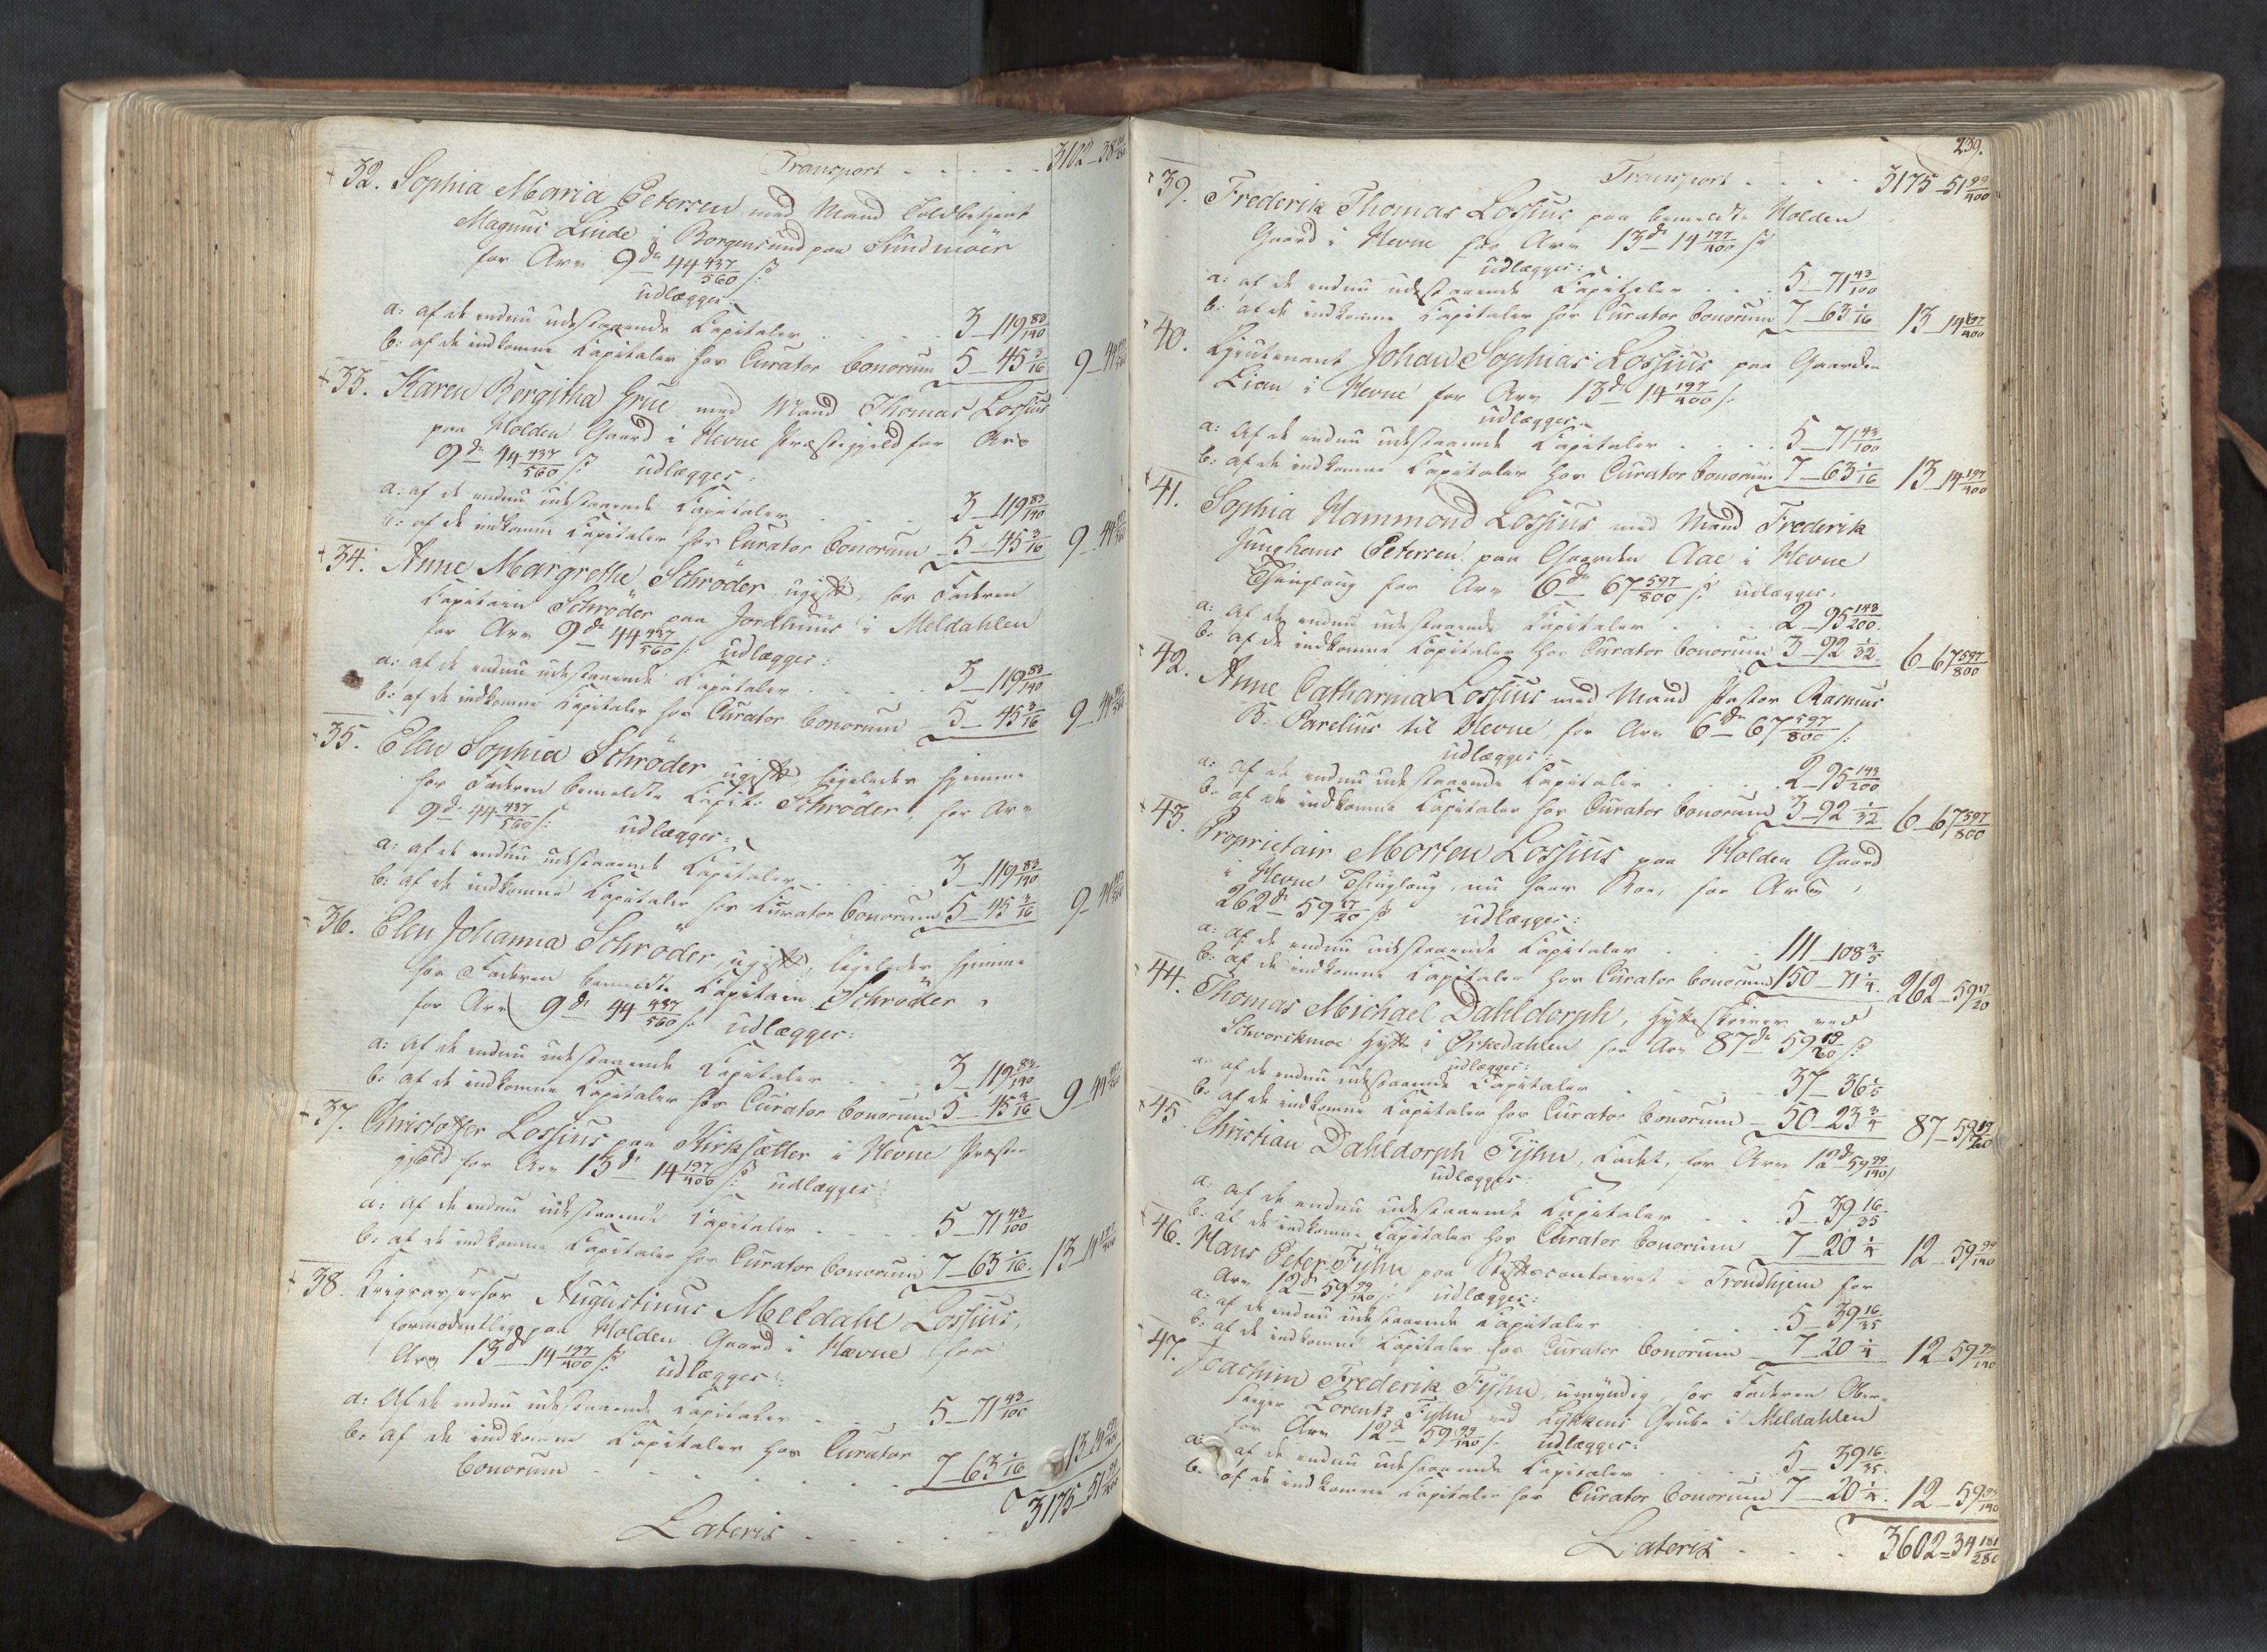 Transport . . . . . 3102_38
32. Sophia Maria Petersen med Mand Toldbetjent
Magnus Linde i Borgensund paa Sundmöer
for Arv 9 d. 44 437/560 s:
udlægges:
a: af de endnu udestaaende Capitaler . . . . 3_119 83/140
b: af de indkomne Capitaler hos Curator bonorum 5_45 3/16 9_44
33. Karen Bergitha Grue med Mand Thomas Lossius
paa Holden Gaard i Hevne Præstegjeld for Arv
9 d. 44 437/560 s: udlægges:
a: af de endnu udestaaende Capitaler . . . 3_119 83/140
b: af de indkomne Capitaler hos Curator bonorum 5_45 3/16 9_44
34. Anne Margrethe Schrøder, ugift, hos Faderen
Capitain Schrøder paa Jordhuus i Meldahlen
for Arv 9 d. 44 437/560 s: udlægges:
a: af de endnu udestaaende Capitaler . . . 3_119 83/140
b: af de indkomne Capitaler hos Curator bonorum 5_45 3/16 9_44
35. Elen Sophia Schröder ugift ligeledes hjemme
hos Faderen bemeldte Capit: Schrøder, for Arv
9 d. 44 437/560 s: udlægges:
a: af de endnu udestaaende Capitaler . . . . 3_119 83/140
b: af de indkomne Capitaler hos Curator bonorum 5_45 3/16 9_44
36. Elen Johanna Schrøder, ugift, ligeledes hjemme
hos Faderen bemeldte Capitain Schrøder,
for Arv 9 d. 44 437/560 s: udlægges:
a: af de endnu udestaaende Capitaler . . . 3_119 83/140
b: af de indkomne Capitaler hos Curator bonorum 5_45 3/16 9_44
37. Christoffer Lossius paa Kirksætter i Hevne Præste-
gjeld for Arv 13 d. 14 197/400 s: udlægges:
a: af de endnu udestaaende Capitaler . . . . 5_71 43/100
b: af de indkomne Capitaler hos Curator bonorum 7_63 1/16 13_14
38. Krigsassessor Augustinus Meldahl Lossius,
formodentlig paa Holden Gaard i Hævne for
Arv 13 d. 14 197/400 s: udlægges:
a: Af de endnu udestaaende Capitaler . . . 5_71 43/100
b: af de indkomne Capitaler hos Curator
bonorum . . . . . . . 7_63 1/16 13_14
Lateris . . . . 3175_51
239.
Transport . . . . 3175_51 99/400
39. Frederik Thomas Lossius paa bemeldte Holden
Gaard i Hevne for Arv 13 d. 14 197/400 s:
udlægges:
a: af de endnu udestaaende Capitaler . . . 5_71 43/100
b: af de indkomne Capitaler hos Curator bonorum 7_63 1/16 13_14 197/400
40. Lieutenant Johan Sophias Lossius paa Gaarden
Lian i Hevne for Arv 13 d. 14 197/400 s:
udlægges:
a: Af de endnu udestaaende Capitaler . . . 5_71 43/100
b: Af de indkomne Capitaler hos Curator bonorum 7_63 1/16 13_14 197/400
41. Sophia Hammond Lossius med Mand Frederik
Junghans Petersen paa Gaarden Aae i Hevne
Thinglaug for Arv 6 d. 67 597/800 s: udlægges:
a: Af de endnu udestaaende Capitaler . . 2_95 143/200
b: Af de indkomne Capitaler hos Curator bonorum 3_92 1/32. 6_67 597/800
42. Anne Catharina Lossius med Mand Pastor Rasmus
B. Parelius til Hevne, for Arv 6 d. 67 597/800 s:
udlægges:
a: Af de endnu udestaaende Capitaler . . . 2_95 143/200
b: af de indkomne Capitaler hos Curator bonorum 3_92 1/32 6_67 597/800
43. Proprietair Morten Lossius paa Holden Gaard
i Hevne Thinglaug, nu hans Boe, for Arv,
262 d. 59 17/20 s: udlægges:
a: af de endnu udestaaende Capitaler . . . 111_108 3/5
b: af de indkomne Capitaler hos Curator bonorum 150_71 1/4. 262_59 17/20
44. Thomas Michael Dahldorph, Hytteskriver ved
Svorckmoe Hytte i Ørkedahlen for Arv 87 d. 59 19/20 s:
udlægges:
a: af de endnu udestaaende Capitaler . . . 37_36 1/5
b: af de indkomne Capitaler hos Curator bonorum 50_23 3/4 87_59 19/20
45. Christian Dahldorph Fyhn, Cadet, for Arv 12 d. 59 99/140
udlægges:
a: af de endnu udestaaende Capitaler . . . 5_39 16/35
b: af de indkomne Capitaler hos Curator bonorum 7_20 1/4 12_59 99/140
46. Hans Peter Fyhn paa Stiftscontoiret i Trondhjem for
Arv 12 d. 59 99/140 s: udlægges:
a: af de endnu udestaaende Capitaler . . . . 5_39 16/35
b: af de indkomne Capitaler hos Curator bonorum 7_20 1/4 12_59 99/140
47. Joachim Frederik Fyhn, umyndig, hos Faderen Ober-
stiger Lorentz Fyhn ved Løkkens Grube i Meldahlen
for Arv 12 d. 59 99/140 s: udlægges:
a: af de endnu udestaaende Capitaler . . . 5_39 16/35.
b: af de indkomne Capitaler hos Curator bonorum 7_20 1/4. 12_59 99/140
Lateris . . . 3602=34 181/280